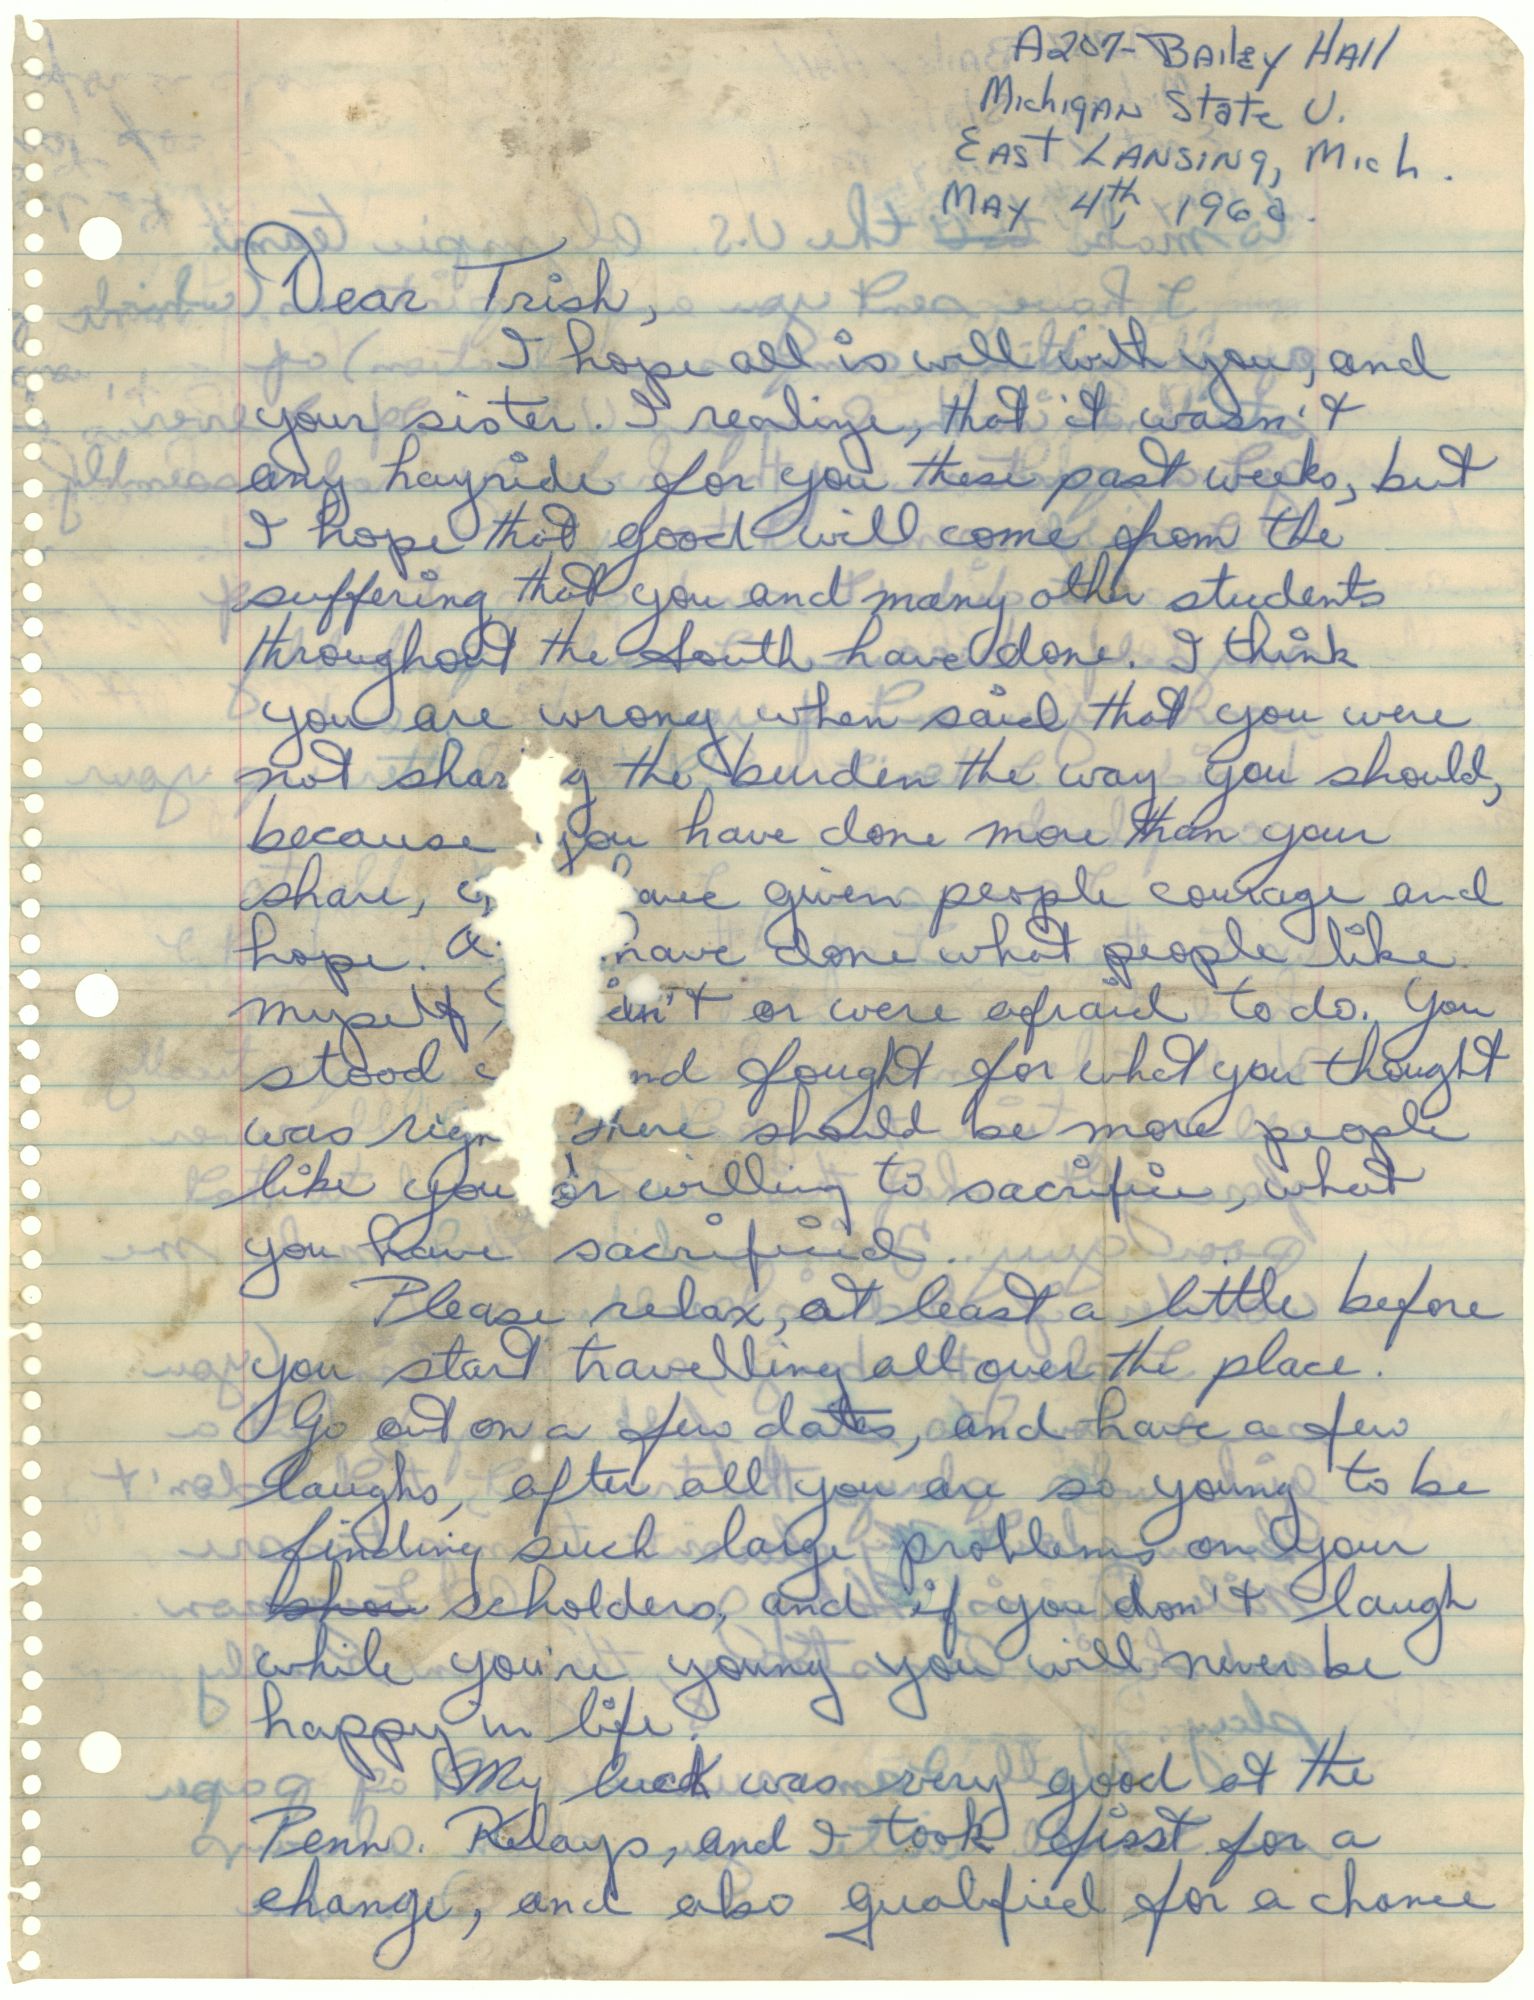 A207- Bailey Hall
Michigan State U.
East Lansing, Mich.
May 4th, 1960.
Dear Trish,
I hope all is well with you, and
your sister. I realize, that it wasn't
any hayride for you these past weeks, but
I hope that good will come from the
suffering that you and many other students
throughout the South have done. I think
you are wrong when said that you were
not shar g the burden the way you should,
because you have done more than your
share, have given people courage and
hope. have done what people like
myself, or were afraid to do. You
stood nd fought for what you thought
was righ there should be more people
like you or willing to sacrifice, what
you have sacrificed.
Please relax, at least a little before
you start travelling all over the place.
Go out on a few dates, and have a few
laughs, after all you are so young to be
finding such large problems on your
scholders, and if you don't laugh
while you're young you will never be
happy in life.
My luck was very good at the
Penn. Relays, and I took fisst for a
change, and also qualified for a chance